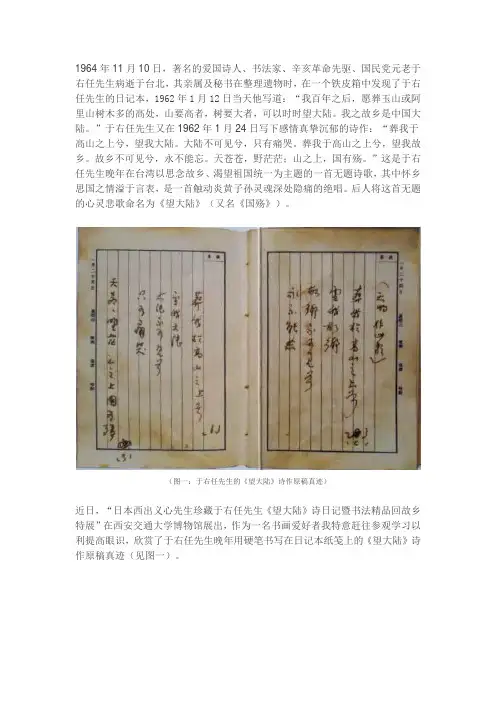 1964年11月10日，著名的爱国诗人、书法家、辛亥革命先驱、国民党元老于
右任先生病逝于台北，其亲属及秘书在整理遗物时，在一个铁皮箱中发现了于右
任先生的日记本，1962年1月12日当天他写道：“我百年之后，愿葬玉山或阿
里山树木多的高处，山要高者，树要大者，可以时时望大陆。我之故乡是中国大
陆。”于右任先生又在1962年1月24日写下感情真挚沉郁的诗作：“葬我于
高山之上兮，望我大陆。大陆不可见兮，只有痛哭。葬我于高山之上兮，望我故
乡。故乡不可见兮，永不能忘。天苍苍，野茫茫；山之上，国有殇。”这是于右
任先生晚年在台湾以思念故乡、渴望祖国统一为主题的一首无题诗歌，其中怀乡
思国之情溢于言表，是一首触动炎黄子孙灵魂深处隐痛的绝唱。后人将这首无题
的心灵悲歌命名为《望大陆》（又名《国殇》）。
葬我於高山之上兮
望我故鄉
故鄉不可見兮
永不能忘
葬我於高山之上兮
望我大陸
大陸不可見兮
只有痛哭
（图一：于右任先生的《望大陆》诗作原稿真迹）
近日，“日本西出义心先生珍藏于右任先生《望大陆》诗日记暨书法精品回故乡
特展”在西安交通大学博物馆展出，作为一名书画爱好者我特意赶往参观学习以
利提高眼识，欣赏了于右任先生晚年用硬笔书写在日记本纸笺上的《望大陆》诗
作原稿真迹（见图一）。